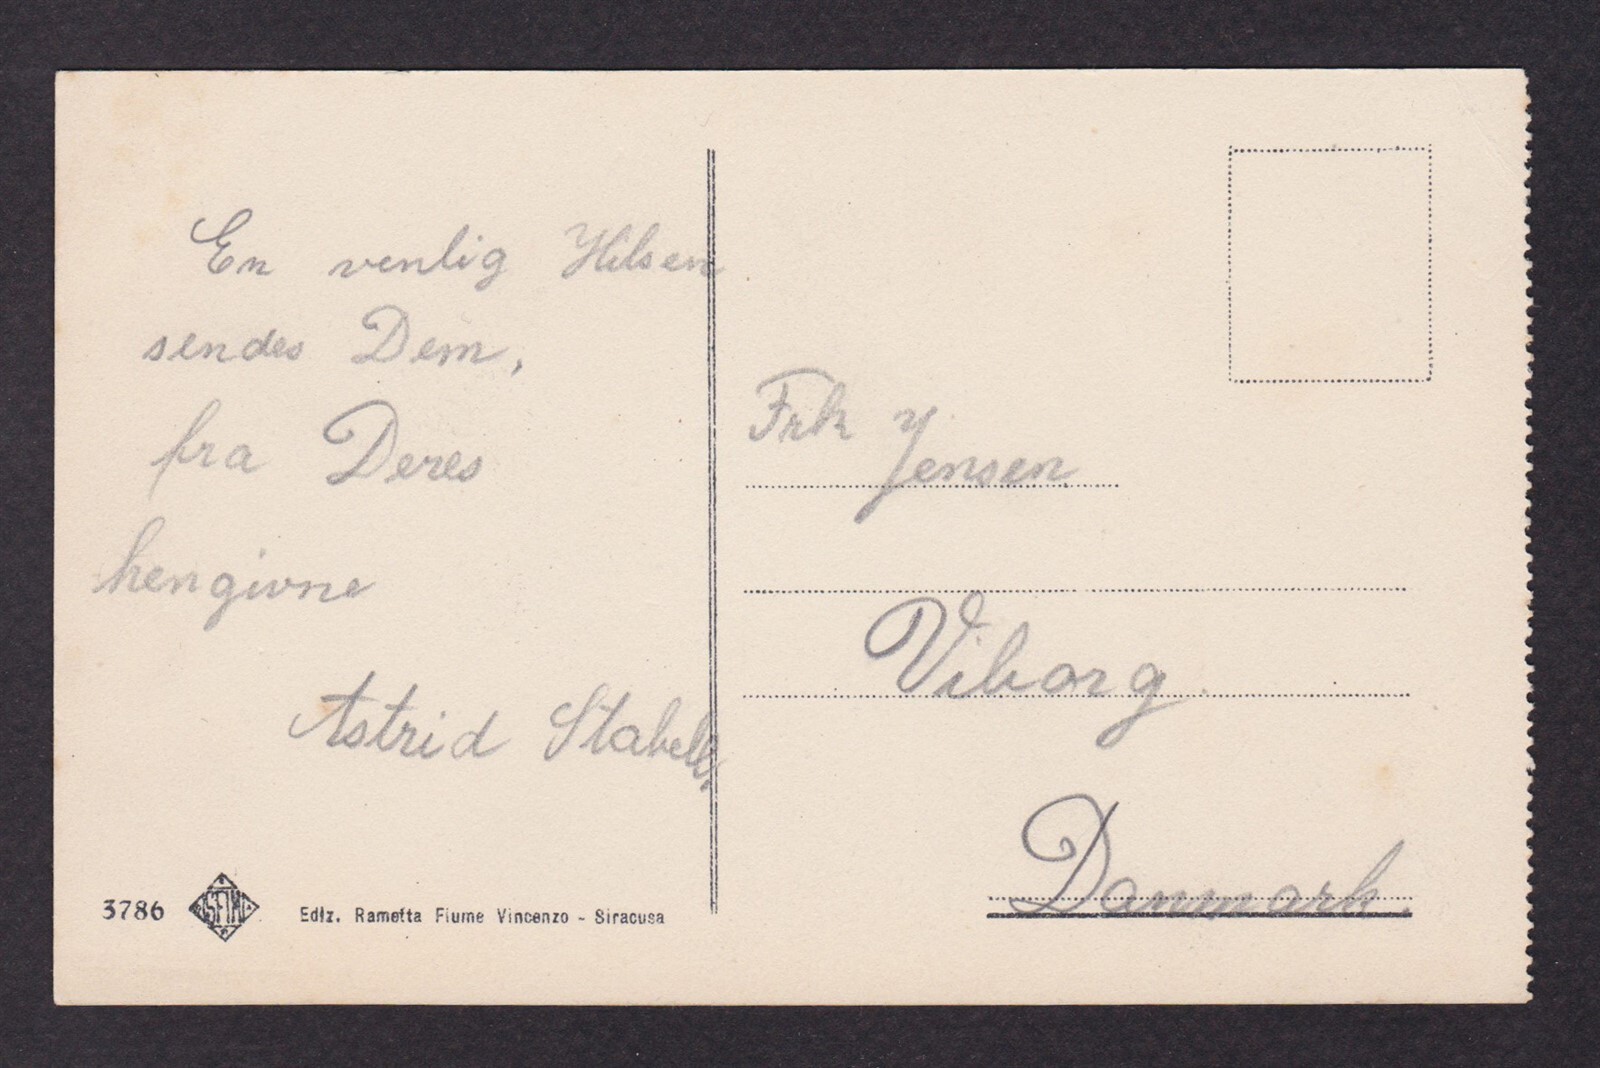 En venlig Hilsen
sendes Dem,
fra Deres
hengivne
Astrid Stabell,
3786
Ediz. Rametta Fiume Vincenzo - Siracusa
Frk Y
Jensen
Viborg.
Danmark.